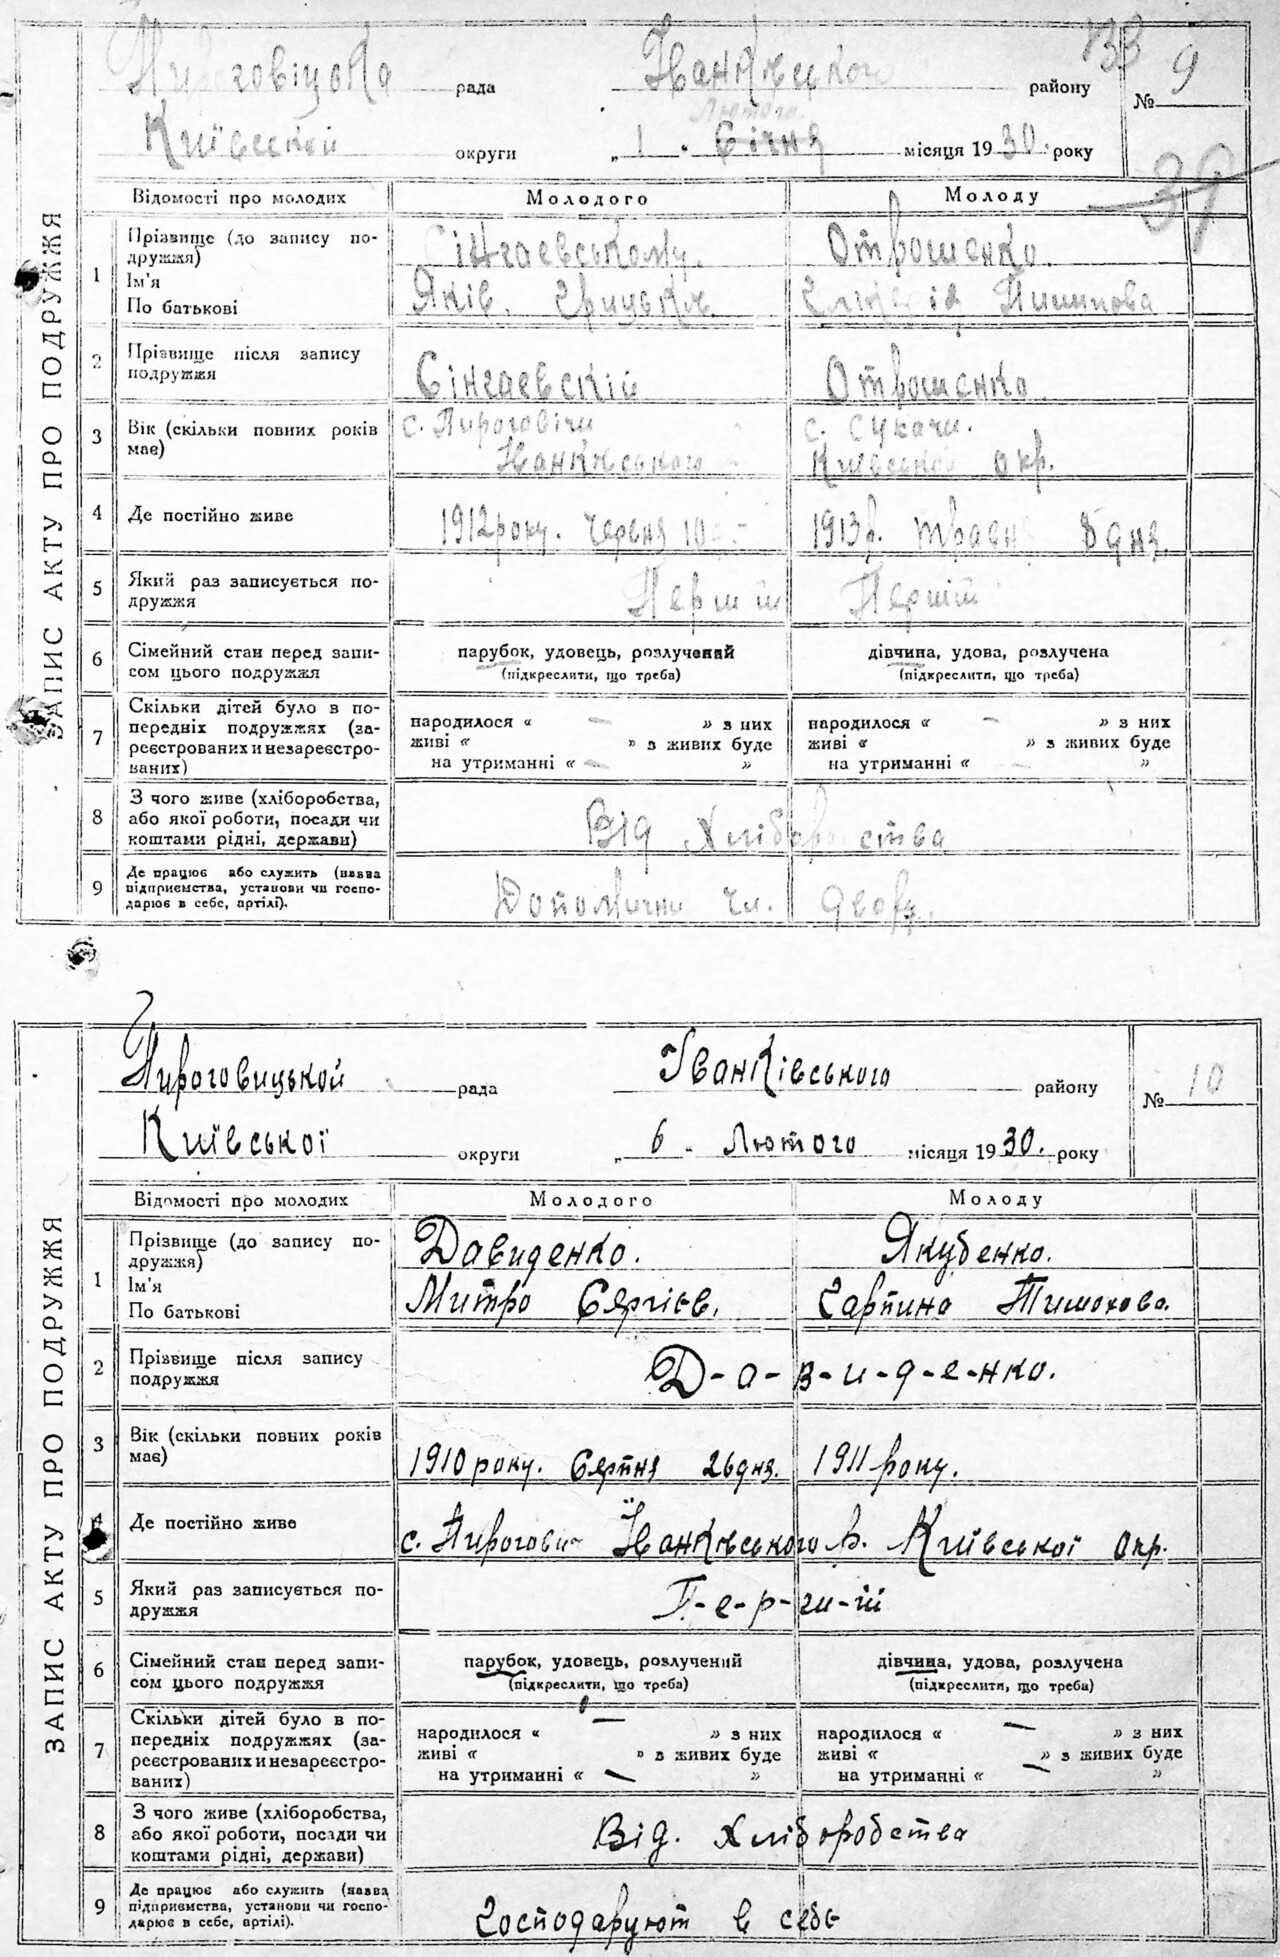 133
Пироговіцька рада Іванківського району № 9
Лютого.
Київській округи „ 1 „ Січня місяця 1930 року
39
ЗАПИС АКТУ ПРО ПОДРУЖЖЯ
Відомості про молодих Молодого Молоду
1 Прізвище (до запису по-
дружжя) Сінгаевському. Отрошенко.
Ім'я
По батькові Яків. Грицьків.
2 Прізвище після запису
подружжя Сінгаевскій Отрошенко.
3 Вік (скільки повних років с. Пироговічи с. Сукачи.
має) Іванківського Київської окр.
4 Де постійно живе 1912 року. Червня 10 1913 р. травня 8 дня.
5 Який раз записується по-
дружжя Перший Перший
6 Сімейний стан перед запи- парубок, удовець, розлучений дівчина, удова, розлучена
сом цього подружжя (підкреслити, що треба) (підкреслити, що треба)
7 Скільки дітей було в по-
передніх подружжях (за- народилося « — » з них народилося « — » з них
реєстрованих и незареєстро- живі « » з живих буде живі « » з живих буде
ваних) на утриманні « — » на утриманні « — »
8 З чого живе (хліборобства,
або якої роботи, посади чи Від Хліборобства
коштами рідні, держави)
9 Де працює або служить (назва
підприємства, установи чи госпо-
дарює в себе, артілі). Допомічни чл. двору.
Пироговицькой рада Іванківського району № 10
Київської округи „ 6 „ Лютого місяця 1930. року
ЗАПИС АКТУ ПРО ПОДРУЖЖЯ
Відомості про молодих Молодого Молоду
1 Прізвище (до запису по-
дружжя) Давиденко. Якубенко.
Ім'я
По батькові Митро Сергієв. Гарпина Тимохова.
2 Прізвище після запису
подружжя Д-а-в-и-д-е-нко.
3 Вік (скільки повних років
має) 1910 року. Серпня 26 дня. 1911 року.
4 Де постійно живе с. Пирогови Іванківського р. Київської окр.
5 Який раз записується по-
дружжя П-е-р-ш-ій
6 Сімейний стан перед запи- парубок, удовець, розлучений дівчина, удова, розлучена
сом цього подружжя (підкреслити, що треба) (підкреслити, що треба)
7 Скільки дітей було в по-
передніх подружжях (за- народилося « — » з них народилося « — » з них
реєстрованих и незареєстро- живі « » з живих буде живі « — » з живих буде
ваних) на утриманні « — » на утриманні « »
8 З чого живе (хліборобства,
або якої роботи, посади чи Від. Хліборобства
коштами рідні, держави)
9 Де працює або служить (назва
підприємства, установи чи госпо-
дарює в себе, артілі). Господарують в себе